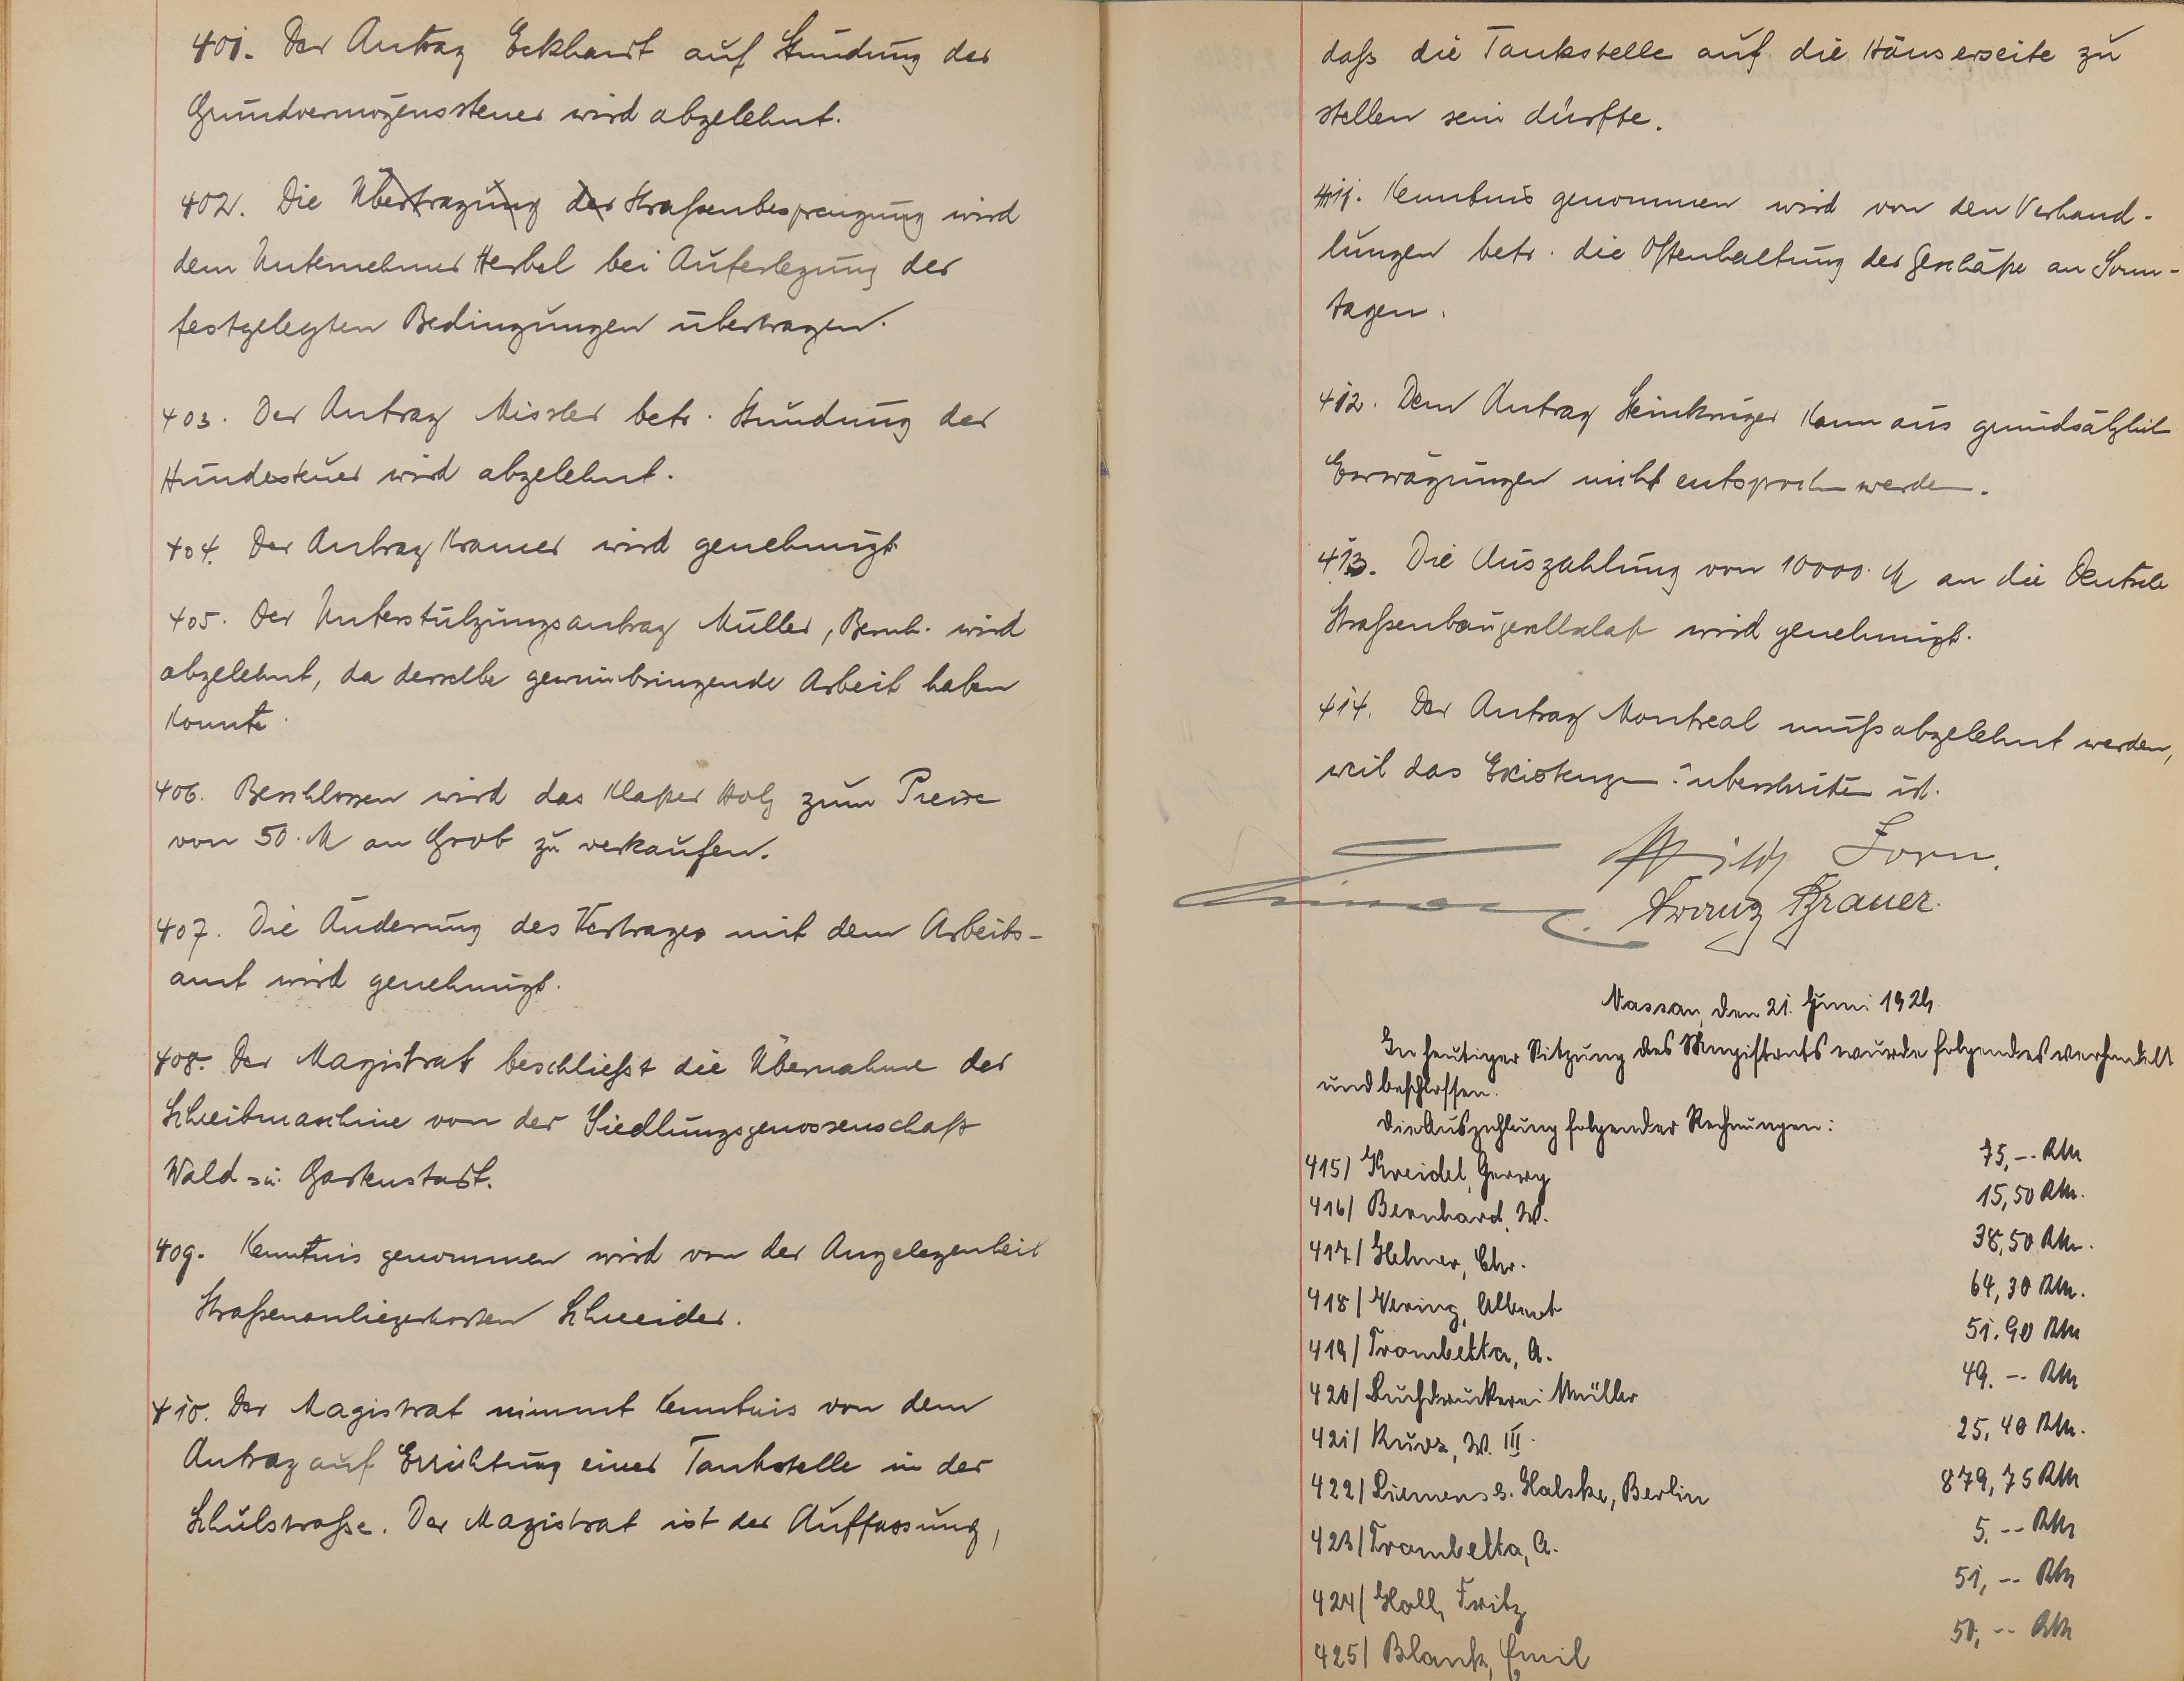 401. Der Antrag Eckhardt auf Stundung der
Grundvermögenssteuer wird abgelehnt.
402. Die Übertragung der Straßenbesprengung wird
dem Unternehmer Herbel bei Auferlegung der
festgelegten Bedingungen übertragen.
403. Der Antrag Missler betr. Stundung der
Hundesteuer wird abgelehnt.
404. Der Antrag Kramer wird genehmigt
405. Der Unterstützungsantrag Müller, Bernh. wird
abgelehnt, da derselbe gewinnbringende Arbeit haben
konnte.
406. Beschlossen wird das Klafter Holz zum Preise
von 50. M an Grob zu verkaufen.
407. Die Änderung des Vertrages mit dem Arbeits-
amt wird genehmigt.
408. Der Magistrat beschließt die Übernahme der
Schreibmaschine von der Siedlungsgenossenschaft
Wald- u. Gartenstadt.
409. Kenntnis genommen wird von der Angelegenheit
Straßenanliegerkosten Schneider.
410. Der Magistrat nimmt Kenntnis von dem
Antrag auf Errichtung einer Tankstelle in der
Schulstraße. Der Magistrat ist der Auffassung,
daß die Tankstelle auf die Häuserseite zu
stellen sein dürfte.
411. Kenntnis genommen wird von den Verhand-
lungen betr. die Offenhaltung der Geschäfte an Sonn-
tagen.
412. Dem Antrag Steinkrüger kann aus grundsätzlich
Erwägungen nicht entsproch werden.
413. Die Auszahlung von 10000. M an die Deutsche
Straßenbaugesellschaft wird genehmigt.
414. Der Antrag Montreal muß abgelehnt werden,
weil das Existenzm. überschritten ist.
Forn.
Franz Brauer.
Nassau, den 21. Juni 1929.
In heutiger Sitzung des Magistrats wurde folgendes verhandelt
und beschlossen.
Die Auszahlung folgender Rechnungen:
415/ Kreidel, Georg 75,-- RM
416/ Bernhard, W. 15,50 RM.
417/ Hehner, Chr. 38,50 RM.
418/ Vering, Albert 64,30 RM.
419/ Trombetta, A. 51.90 RM
420/ Buchdruckerei Müller 49.-- RM
421/ Kurz, W. III. 25,40 RM.
422/ Siemens &. Halske, Berlin 879,75 RM
423/ Trombetta, A. 5.-- RM
424/ Holl, Fritz 51,-- RM
425/ Blank, Emil 50,-- RM